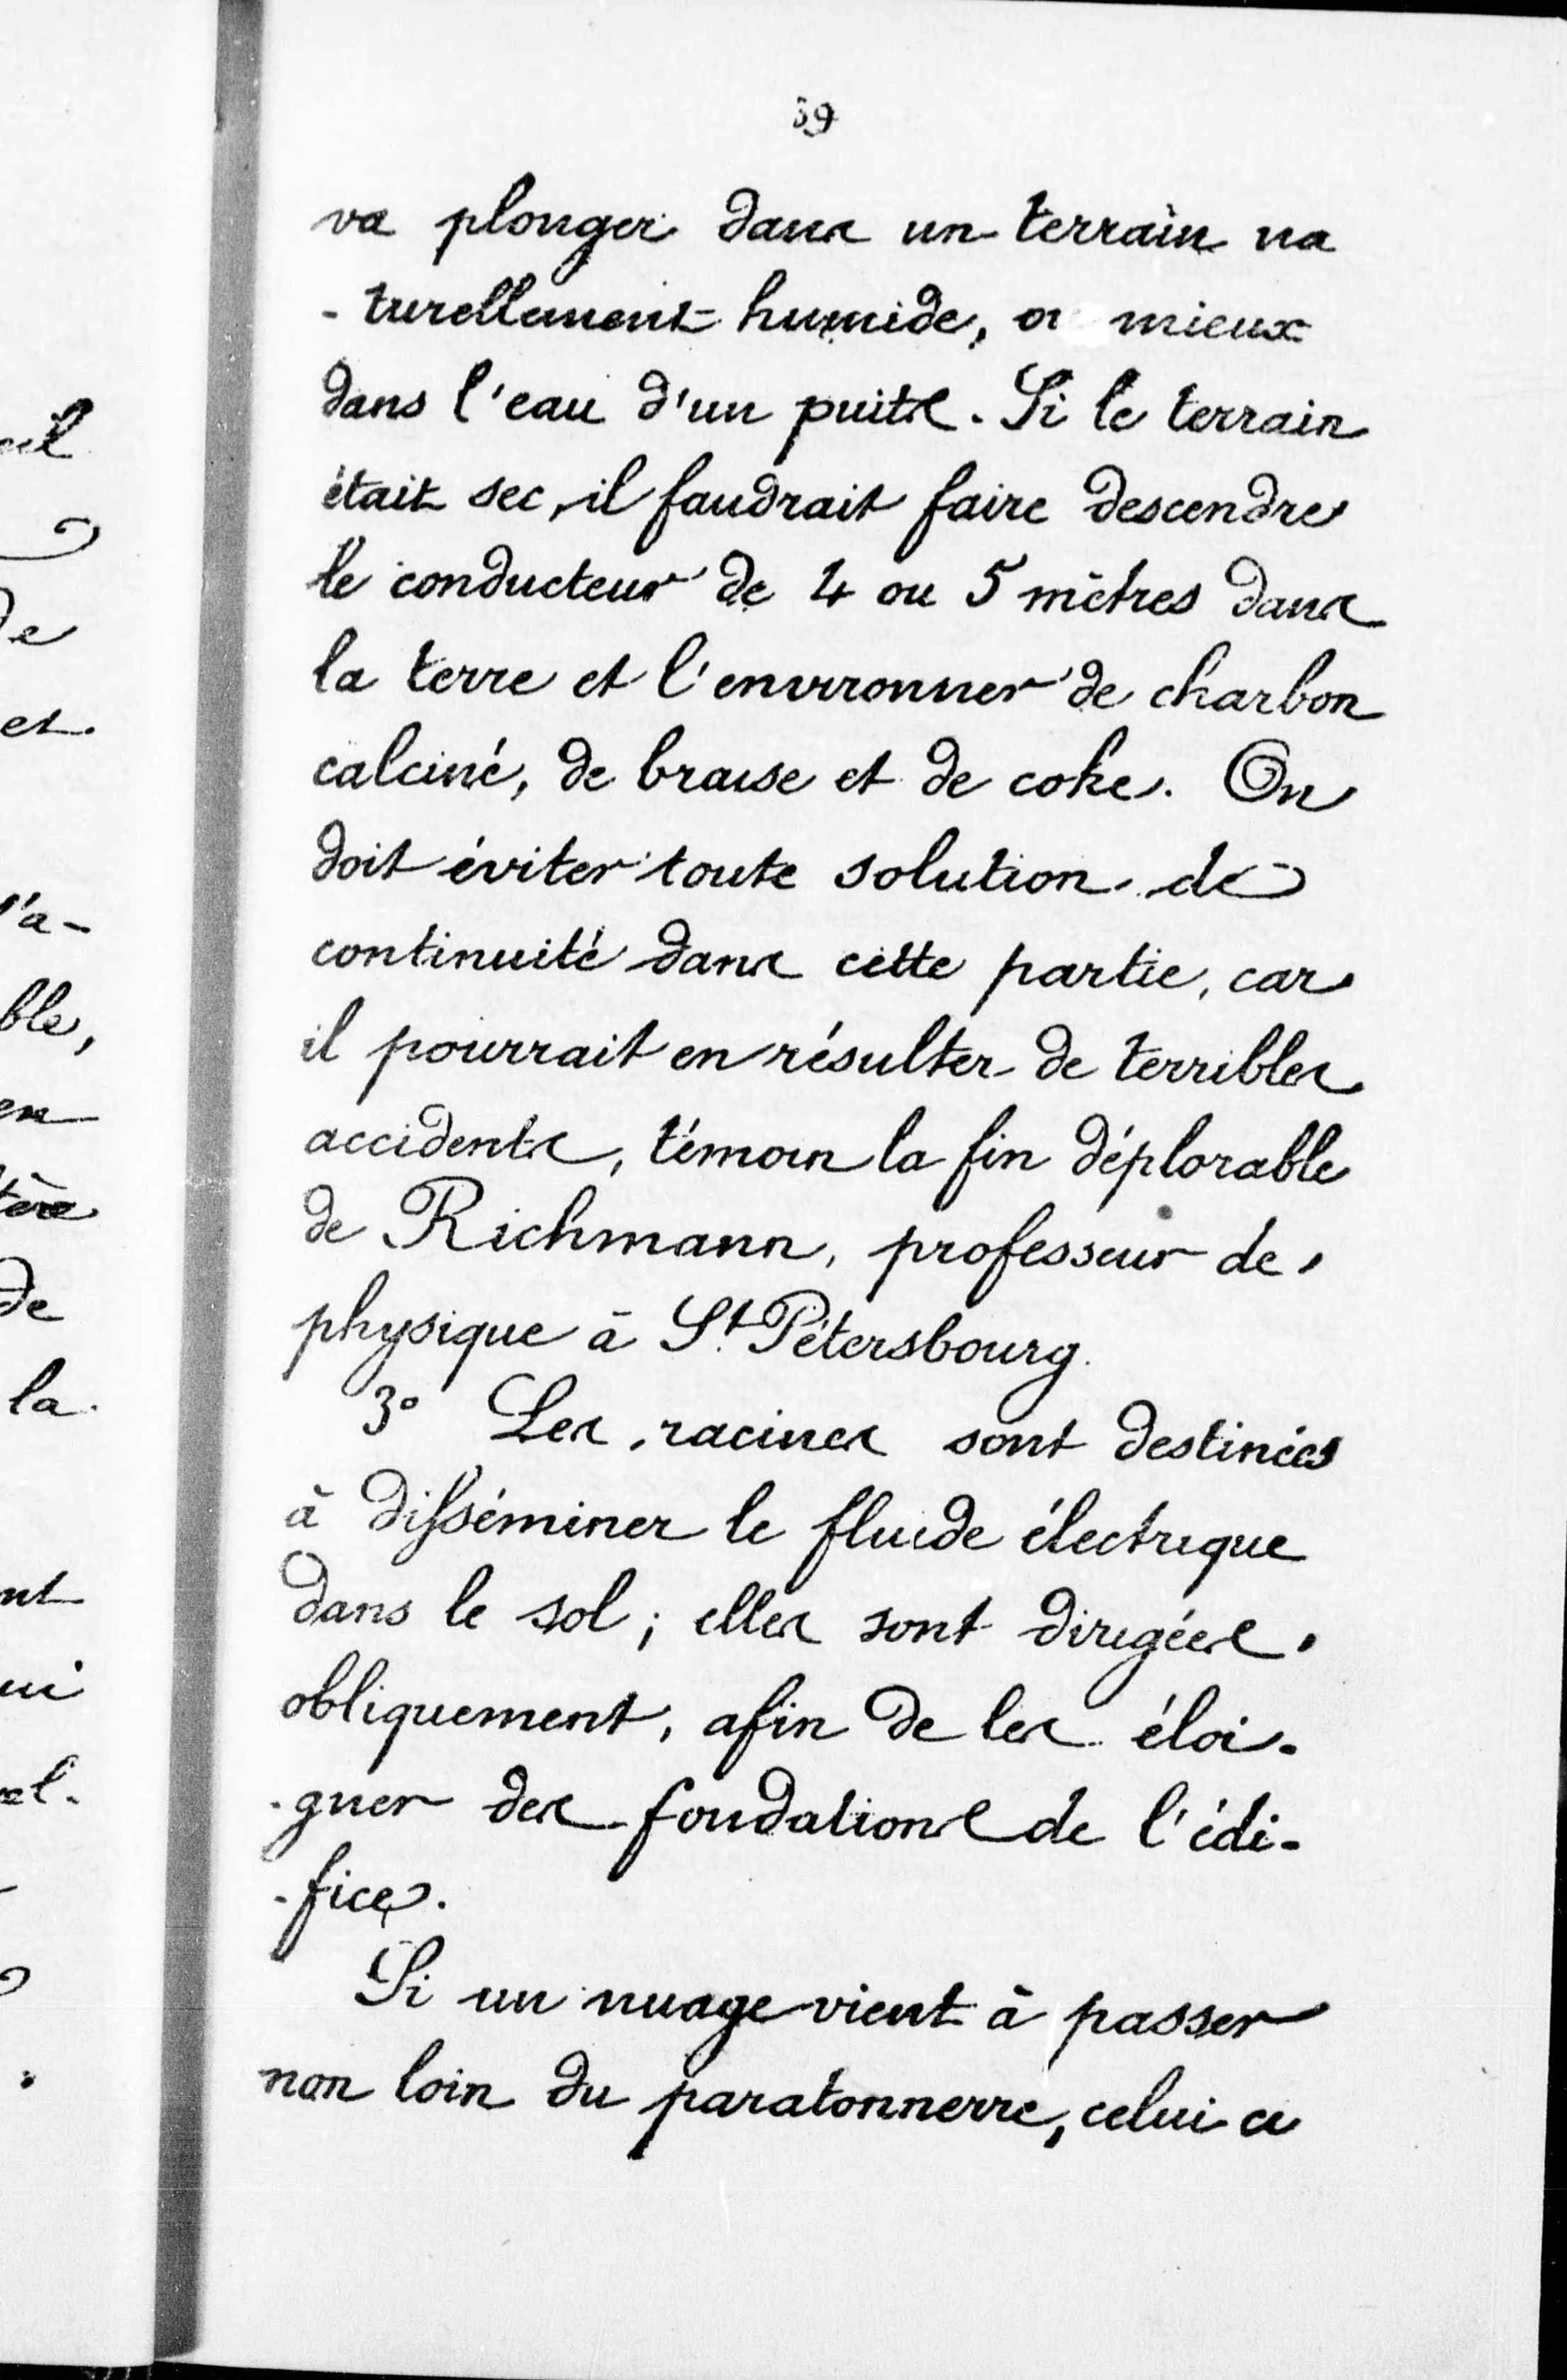 39
va plonger dans un terrain na
-turellement humide, ou mieux
dans l'eau d'un puits. Si le terrain
était sec, il faudrait faire descendre
le conducteur de 4 ou 5 mètres dans
la terre et l'environner de charbon
calciné, de braise et de coke. On
doit éviter toute solution de
continuité dans cette partie, car
il pourrait en résulter de terribles
accidents, témoin la fin déplorable
de Richmann, professeur de
physique à St Pétersbourg.
3° Les racines sont destinées
à disséminer le fluide électrique
dans le sol; elles sont dirigées
obliquement, afin de les éloi-
-gner des fondations de l'édi-
-fice.
Si un nuage vient à passer
non loin du paratonnerre, celui ci